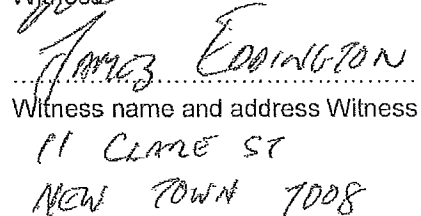 Witness
JAMES EDDINGTON
Witness name and address Witness
11 CLARE ST
NEW TOWN 7008